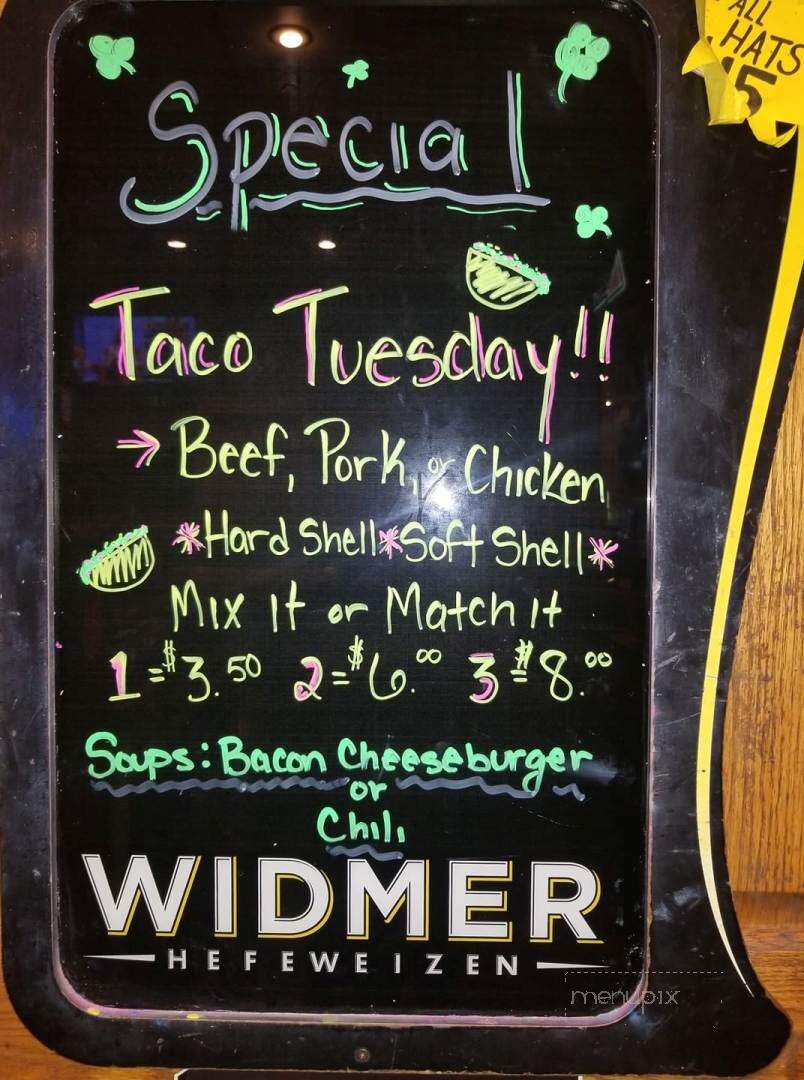 ALL
HATS
15
Special
Taco Tuesday!!
→ Beef, Pork, or Chicken
*Hard Shell*Soft Shell*
Mix It or Match it
1 = $3.50 2 = $6.00 3 = $8.00
Soups: Bacon Cheeseburger
or
Chili
WIDMER
HEFEWEIZEN
menupix